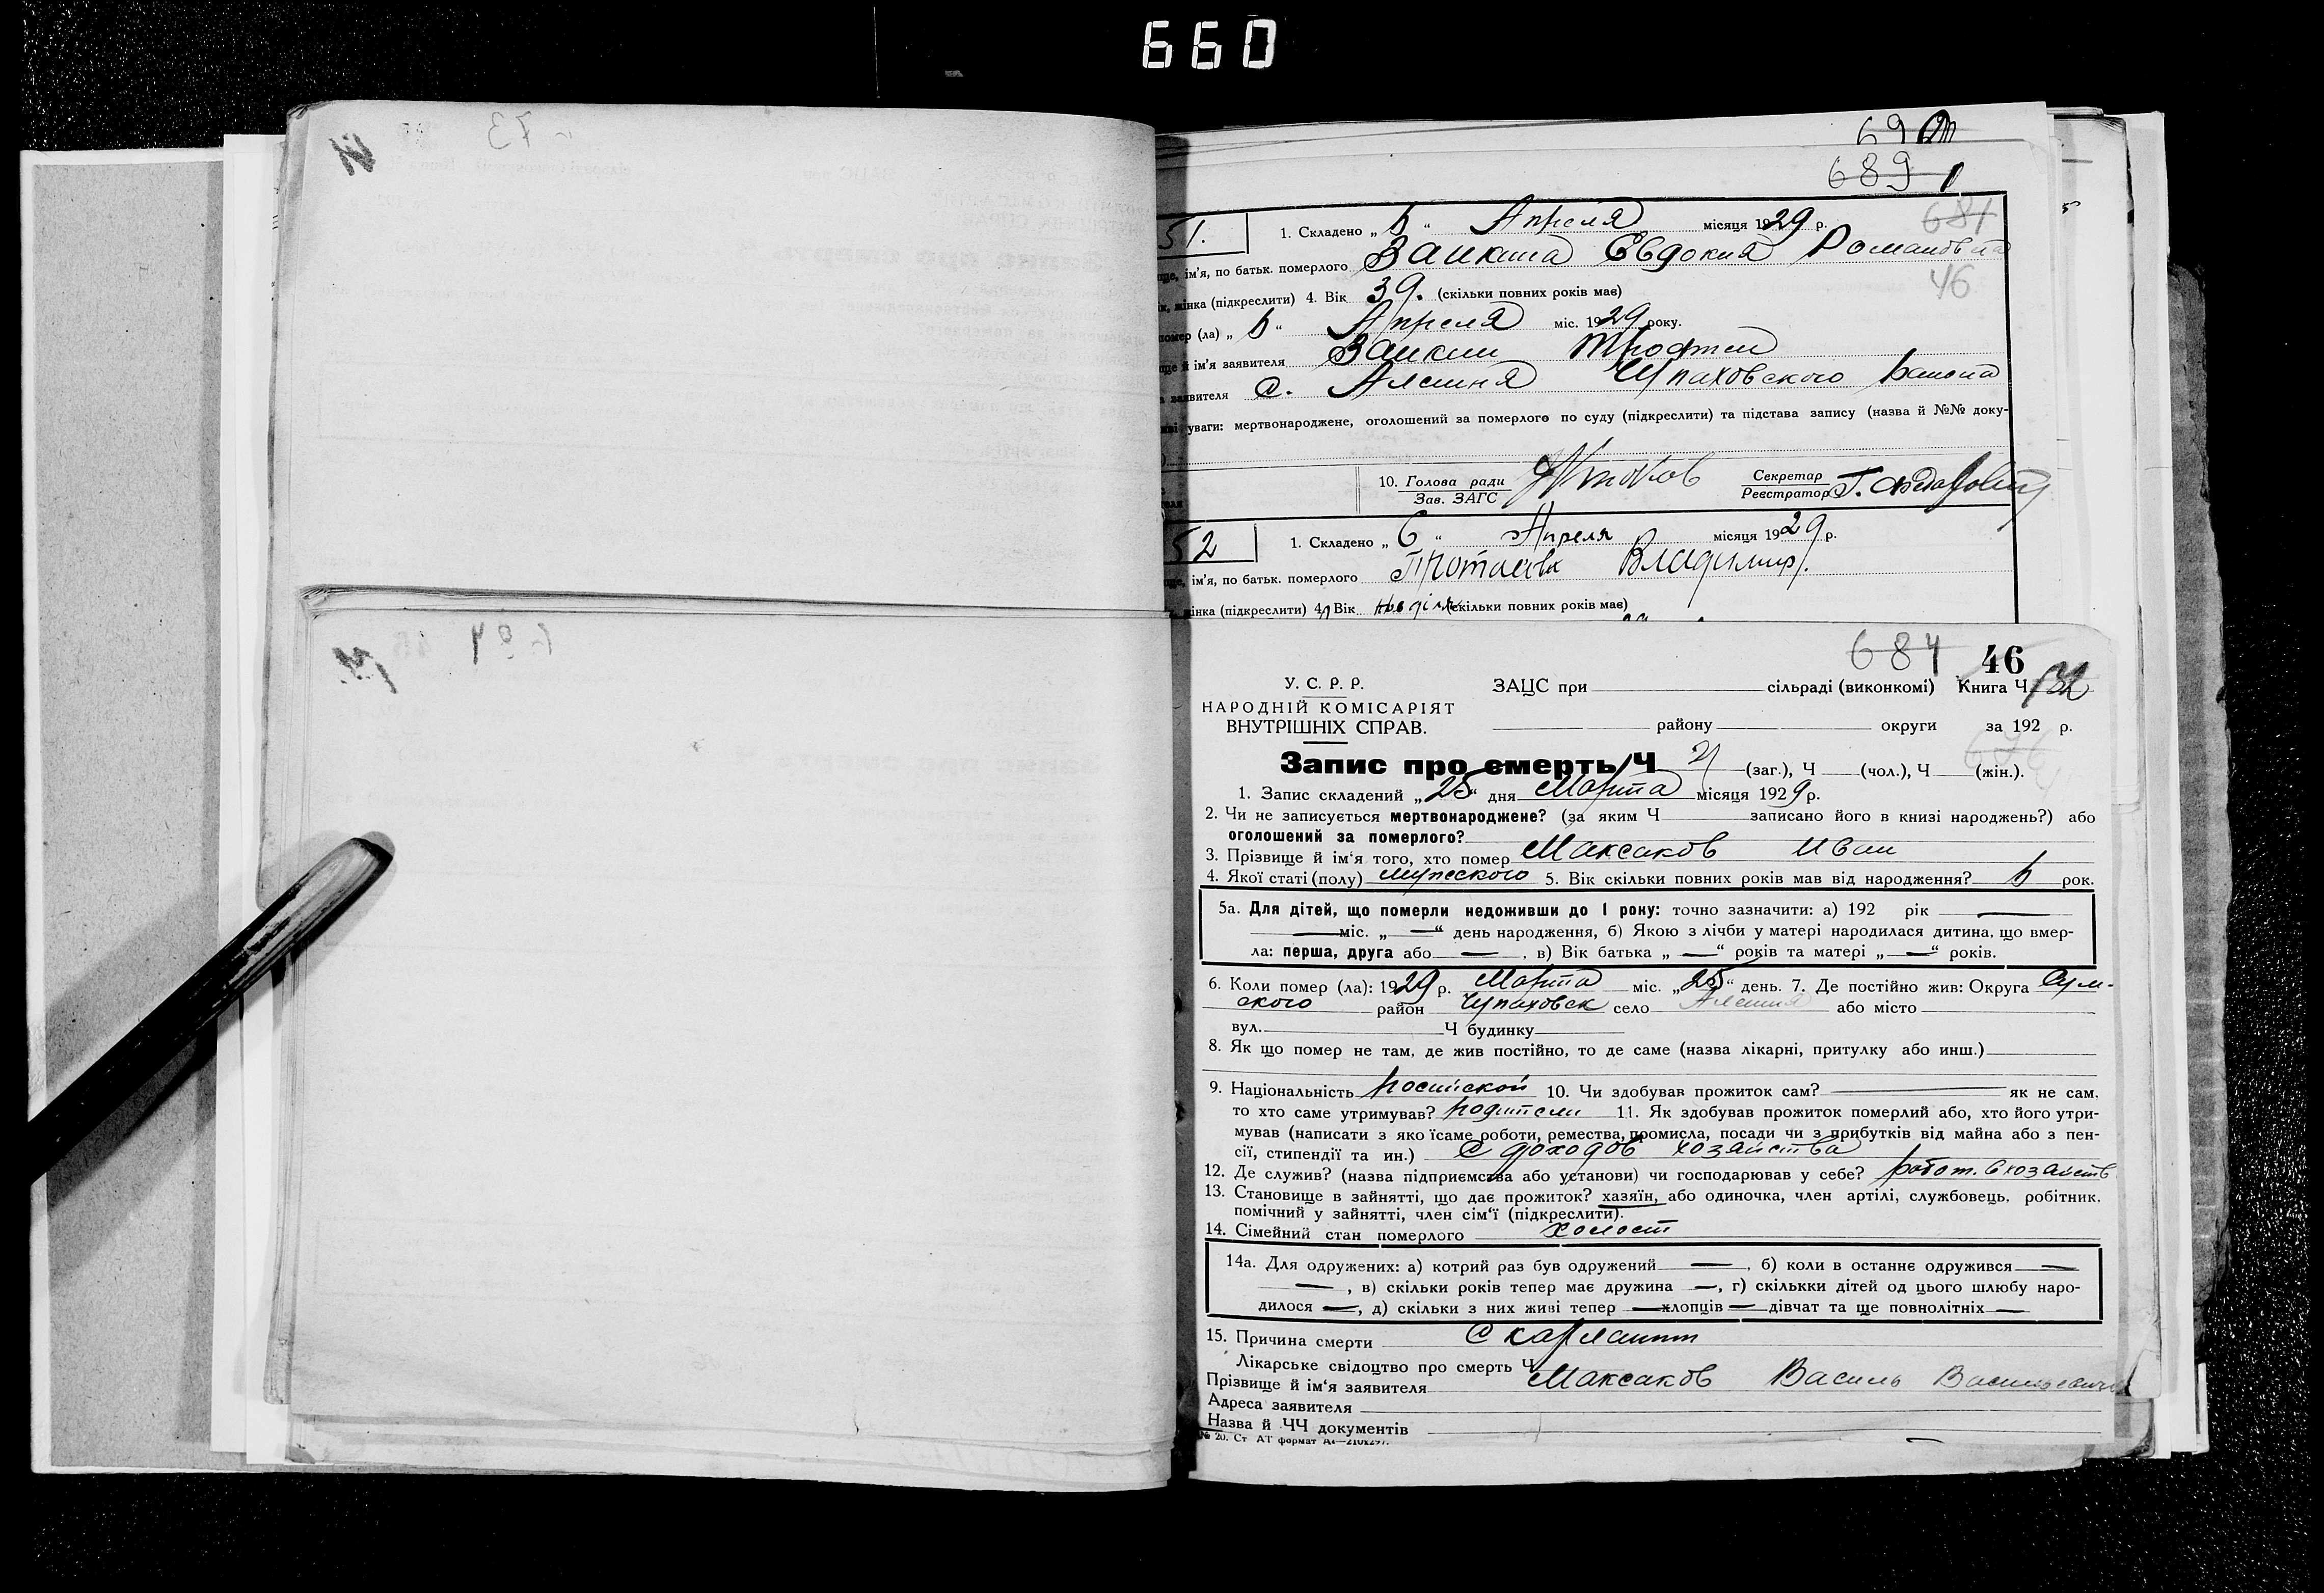 660
692
689
681
51.
1. Складено „ 6 “ Апреля місяця 1929 р.
ще, ім'я, по батьк. померлого Заикина Евдокия Романовна
46
жінка (підкреслити) 4. Вік 39. (скільки повних років має)
помер (ла) „ 6 “ Апреля міс. 1929 року.
ще й ім'я заявителя Заикин Трофим
заявителя с. Алешня Чупаховского района
уваги: мертвонароджене, оголошений за померлого по суду (підкреслити) та підстава запису (назва й №№ доку-
10. Голова ради Секретар
Зав. ЗАГС Реєстратор
52
1. Складено „ 6 “ Апреля місяця 1929 р.
ім'я, по батьк. померлого Протасов Владимир.
жінка (підкреслити) 4. Вік (скільки повних років має)
684 46
У. С. Р. Р. ЗАЦС при сільраді (виконкомі) Книга Ч
НАРОДНІЙ КОМІСАРІЯТ
ВНУТРІШНІХ СПРАВ. району округи за 192 р.
Запис про смерть Ч 21 (заг.), Ч (чол.), Ч (жін.).
1. Запис складений „25“ дня Марта місяця 1929 р.
2. Чи не записується мертвонароджене? (за яким Ч записано його в книзі народжень?) або
оголошений за померлого?
3. Прізвище й ім'я того, хто помер Максаков Иван
4. Якої статі (полу) мужеского 5. Вік скільки повних років мав від народження? 6 рок.
5а. Для дітей, що померли недоживши до 1 року: точно зазначити: а) 192 рік —
— міс. „ — “ день народження, б) Якою з лічби у матері народилася дитина, що вмер-
ла: перша, друга або — , в) Вік батька „ — “ років та матері „ — “ років.
6. Коли помер (ла): 1929 р. Марта міс. „25“ день. 7. Де постійно жив: Округа Сум-
ского район Чупаховск село Алешня або місто
вул. Ч будинку
8. Як що помер не там, де жив постійно, то де саме (назва лікарні, притулку або инш.)
9. Національність 10. Чи здобував прожиток сам? — як не сам,
то хто саме утримував? родители 11. Як здобував прожиток померлий або, хто його утри-
мував (написати з яко їсаме роботи, ремества, промисла, посади чи з прибутків від майна або з пен-
сії, стипендії та ин.) С доходов хозяйства
12. Де служив? (назва підприємства або установи) чи господарював у себе? работ. в хозяйств
13. Становище в зайнятті, що дає прожиток? хазяїн, або одиночка, член артілі, службовець, робітник,
помічний у зайнятті, член сім'ї (підкреслити).
14. Сімейний стан померлого холост
14а. Для одружених: а) котрий раз був одружений — , б) коли в останнє одружився —
— , в) скільки років тепер має дружина —, г) скількки дітей од цього шлюбу наро-
дилося —, д) скільки з них живі тепер — хлопців — дівчат та ще повнолітніх —
15. Причина смерти Скарлатин
Лікарське свідоцтво про смерть Ч
Прізвище й ім'я заявителя Максаков Василь Васильевич
Адреса заявителя
Назва й ЧЧ документів
№ 20. Ст АТ формат А4—210х297.